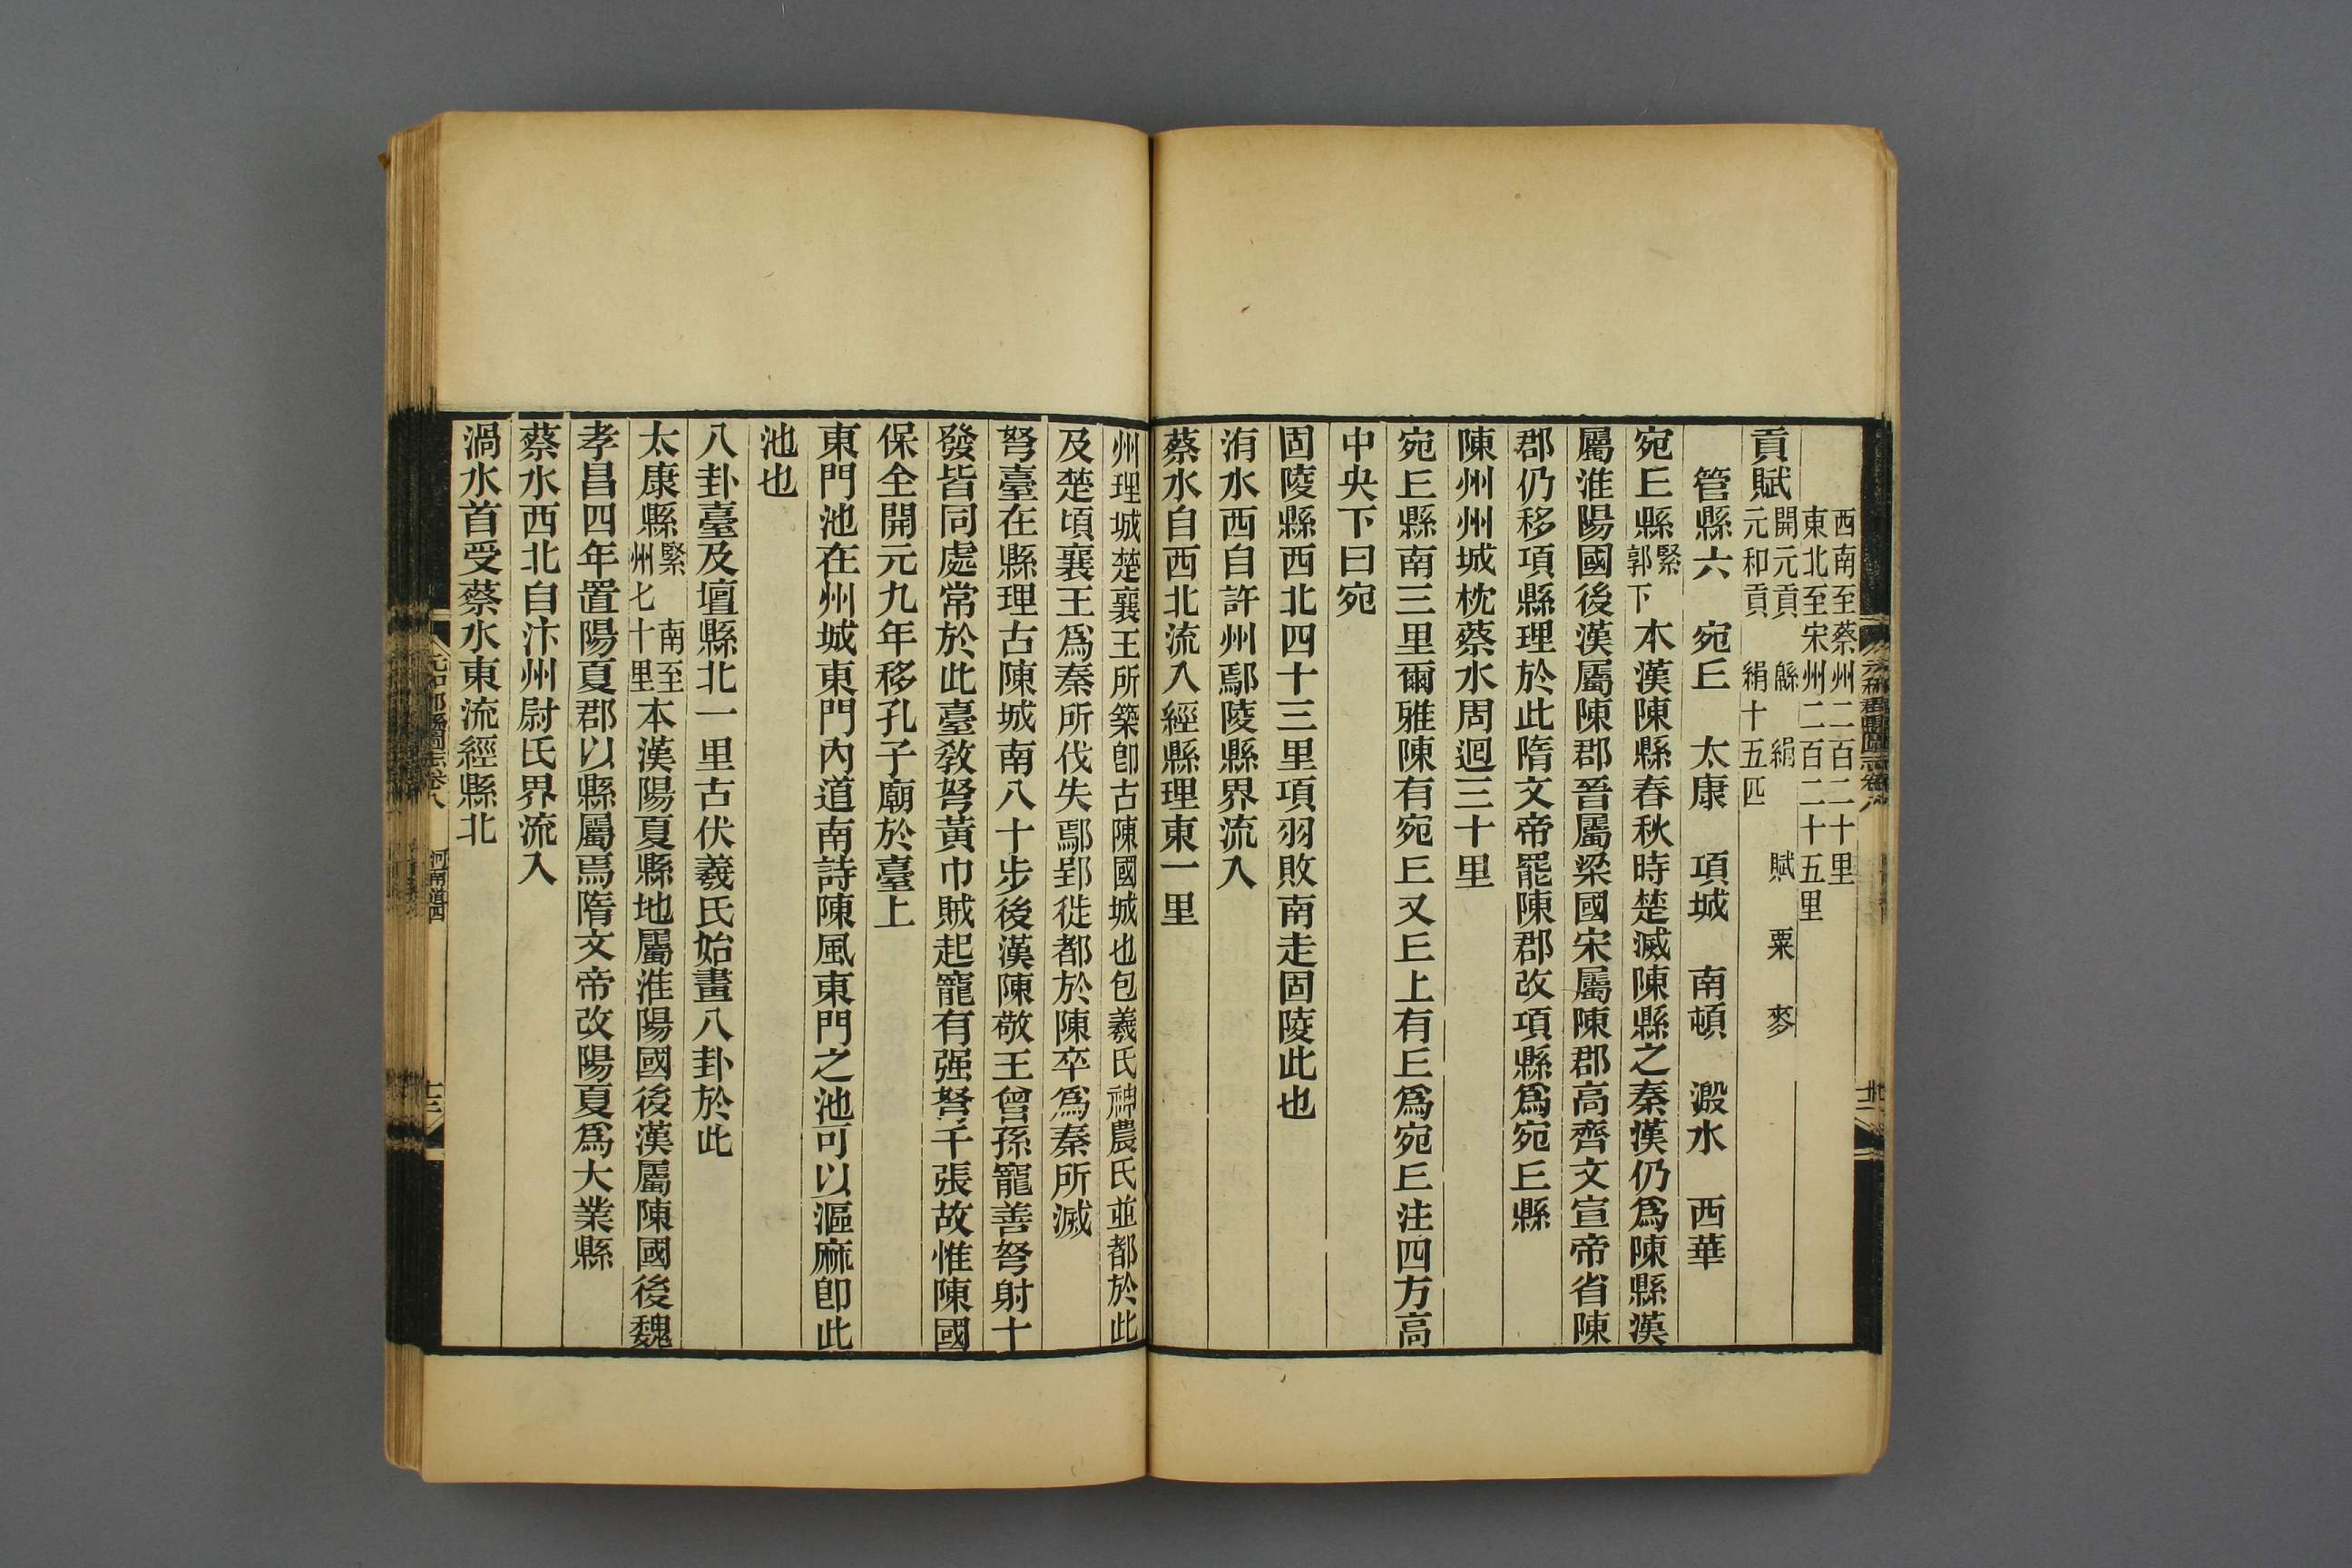 西南至蔡州二百二十里
東北至宋州二百二十五里
貢賦
開元貢 緜 絹 賦 粟 麥
元和貢 絹十五匹
管縣六 宛𠀉 太康 項城 南頓 溵水 西華
宛𠀉縣 緊 郭下 本漢陳縣春秋時楚滅陳縣之秦漢仍爲陳縣漢
屬淮陽國後漢屬陳郡晉屬梁國宋屬陳郡高齊文宣帝省陳
郡仍移項縣理於此隋文帝罷陳郡改項縣爲宛𠀉縣
陳州州城枕蔡水周迴三十里
宛𠀉縣南三里爾雅陳有宛𠀉又𠀉上有𠀉爲宛𠀉注四方高
中央下曰宛
固陵縣西北四十三里項羽敗南走固陵此也
洧水西自許州鄢陵縣界流入
蔡水自西北流入經縣理東一里
州理城楚襄王所築卽古陳國城也包羲氏神農氏並都於此
及楚頃襄王爲秦所伐失鄢郢徙都於陳卒爲秦所滅
弩臺在縣理古陳城南八十步後漢陳敬王曾孫寵善弩射十
發皆同處常於此臺敎弩黃巾賊起寵有强弩千張故惟陳國
保全開元九年移孔子廟於臺上
東門池在州城東門內道南詩陳風東門之池可以漚麻卽此
池也
八卦臺及壇縣北一里古伏羲氏始畫八卦於此
太康縣 緊 南至州七十里 本漢陽夏縣地屬淮陽國後漢屬陳國後魏
孝昌四年置陽夏郡以縣屬焉隋文帝改陽夏爲大業縣
蔡水西北自汴州尉氏界流入
渦水首受蔡水東流經縣北
元和郡縣圖志卷八 河南道四